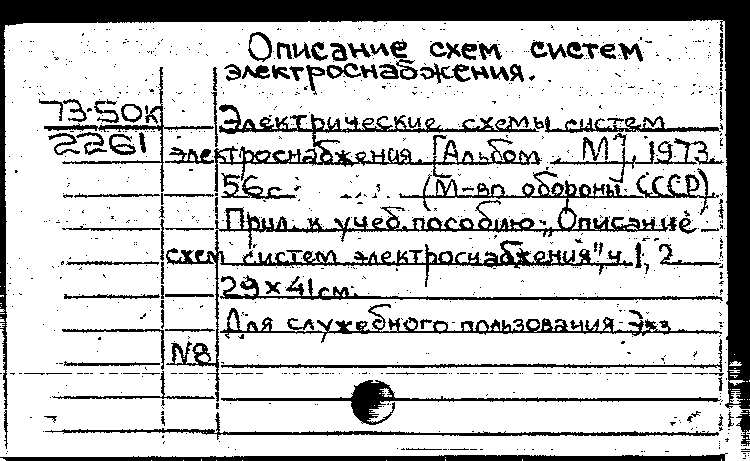 Описание схем систем
электроснабжения.
73-50к
2261
Электрические схемы систем
электроснабжения. [Альбом. М], 1973.
56с. (М-во обороны СССР).
Прил. к учеб. пособию: „Описание
схем систем электроснабжения", ч. 1, 2.
29×41см.
Для служебного пользования. Экз.
№8